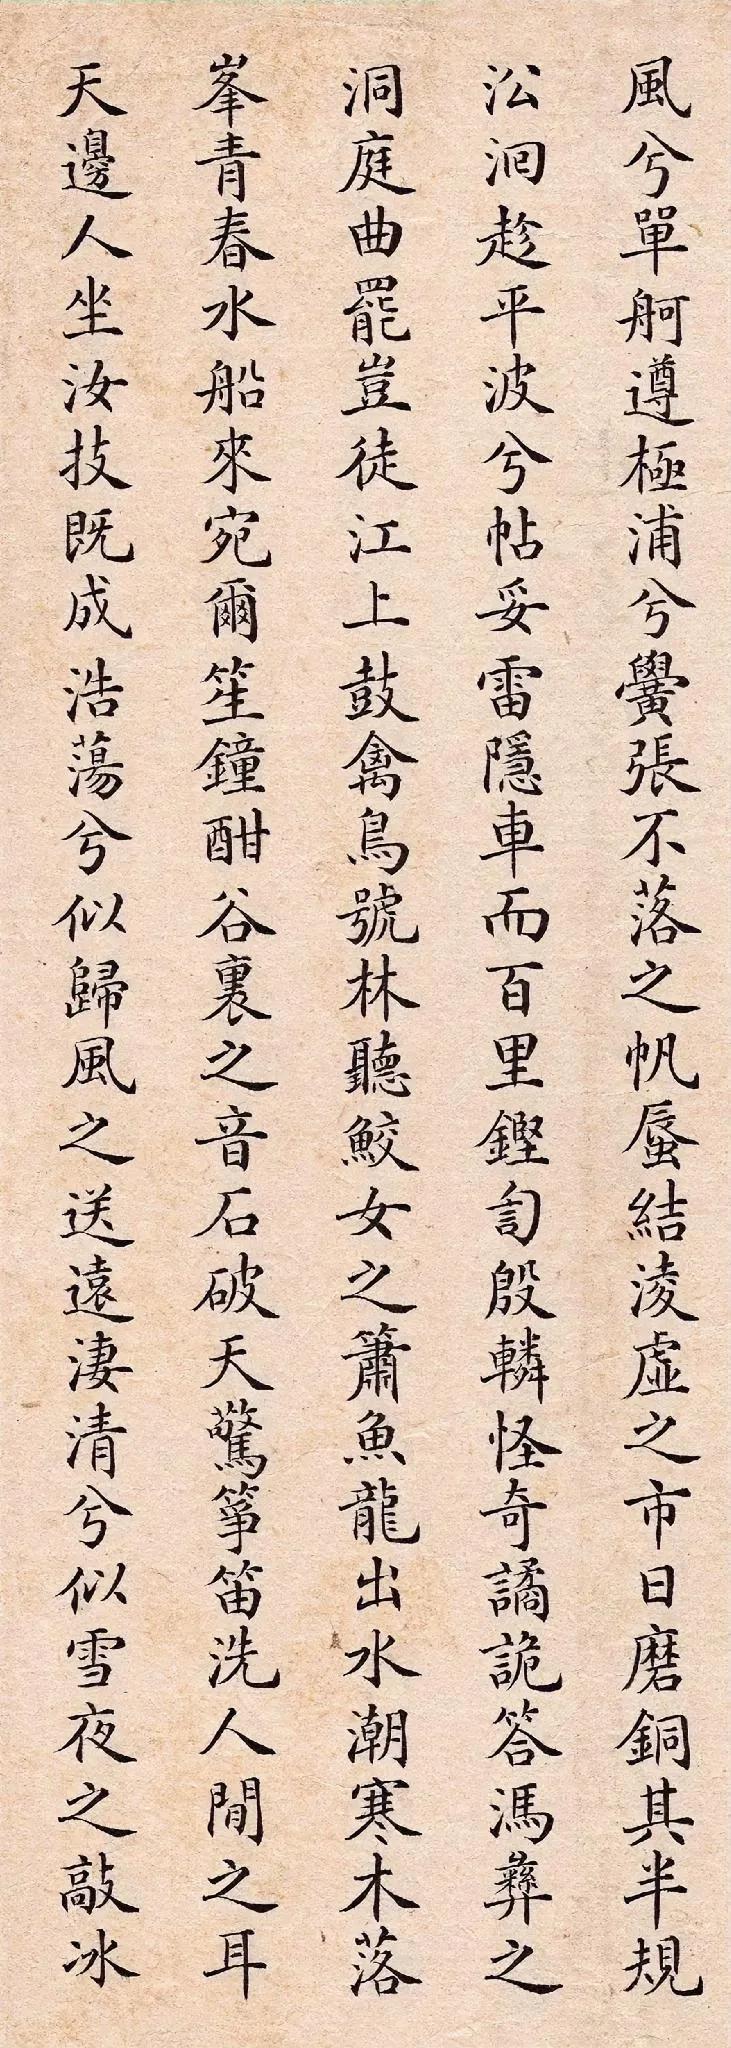 風兮單舸遵極浦兮黌張不落之帆蜃結淩虛之市日磨銅其半規
沿洄趁平波兮帖妥雷隱車而百里鏗訇殷轔怪奇譎詭答馮彝之
洞庭曲罷豈徒江上鼓禽鳥號林聽鮫女之簫魚龍出水潮寒木落
峯青春水船來宛爾笙鐘酣谷裏之音石破天驚箏笛洗人間之耳
天邊人坐汝技既成浩蕩兮似歸風之送遠淒清兮似雪夜之敲冰